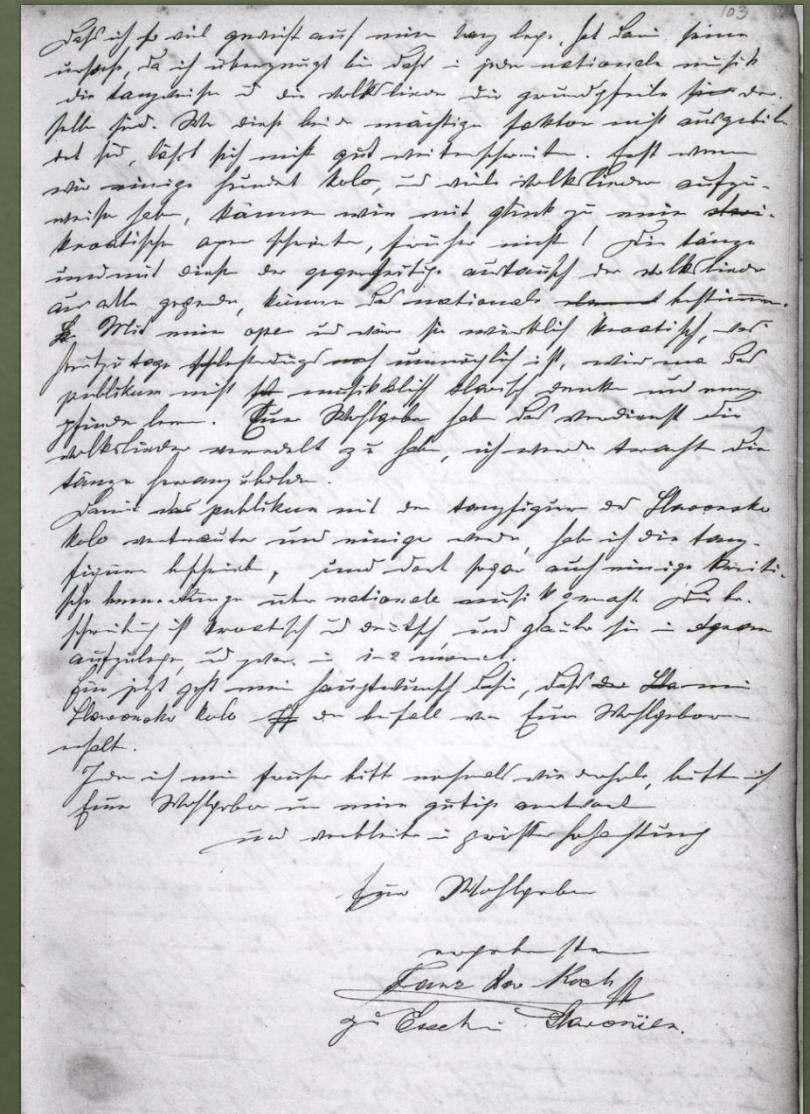 103
Daß ich so viel gewicht auf mein tanz lege, hat darin seine
ursache, da ich überzeugt bin daß in jeder nationale musik
die tanzweise u die volkslieder die grundpfeile sind der-
selbe sind. Wo diese beide mächtige faktor nicht ausgebil-
det sind, läßt sich nicht gut weiterschreiten. Erst wenn
wir einige hundert kolo, und viele volkslieder aufzu-
weise haben, können wir mit glück zu eine
kroatische oper schreiten, früher nicht! Die tänze
und mit diese der gegenseitige austausch der volkslieder
aus alle gegende, können das nationale bestimmen.
Mit eine oper und wäre sie wirklich kroatisch, was
heutzutage noch unmöglich ist, wird man das
publikum nicht musikalisch slavisch denke und em-
pfinde lernen. Euer Wohlgeboren haben das verdienst die
volkslieder veredelt zu haben, ich werde tracht die
tänze heranzubilden.
Damit das publikum mit den tanzfiguren des Slavonsko
kolo vertrauter und einige werde, habe ich die tanz-
figuren beschrieben, und dort sogar auch einige kriti-
sche bemerkunge über nationale musik gemacht. Die be-
schreibung ist kroatisch u deutsch, und glaube sie in
aufzulege, und zwar in 1-2 monat.
Für jetzt geht mein hauptwunsch dahin, daß mein
Slavonsko kolo den beifall von Euer Wohlgeboren
erhalt.
Inde ich mein früher bitt nochmals wiederhole, bitte ich
Euer Wohlgeboren um eine gütige antwort
und verbleibe in größter hochachtung
Euer Wohlgeboren
ergebenster
Franz Xav Koch
zu Essek in Slavonien.